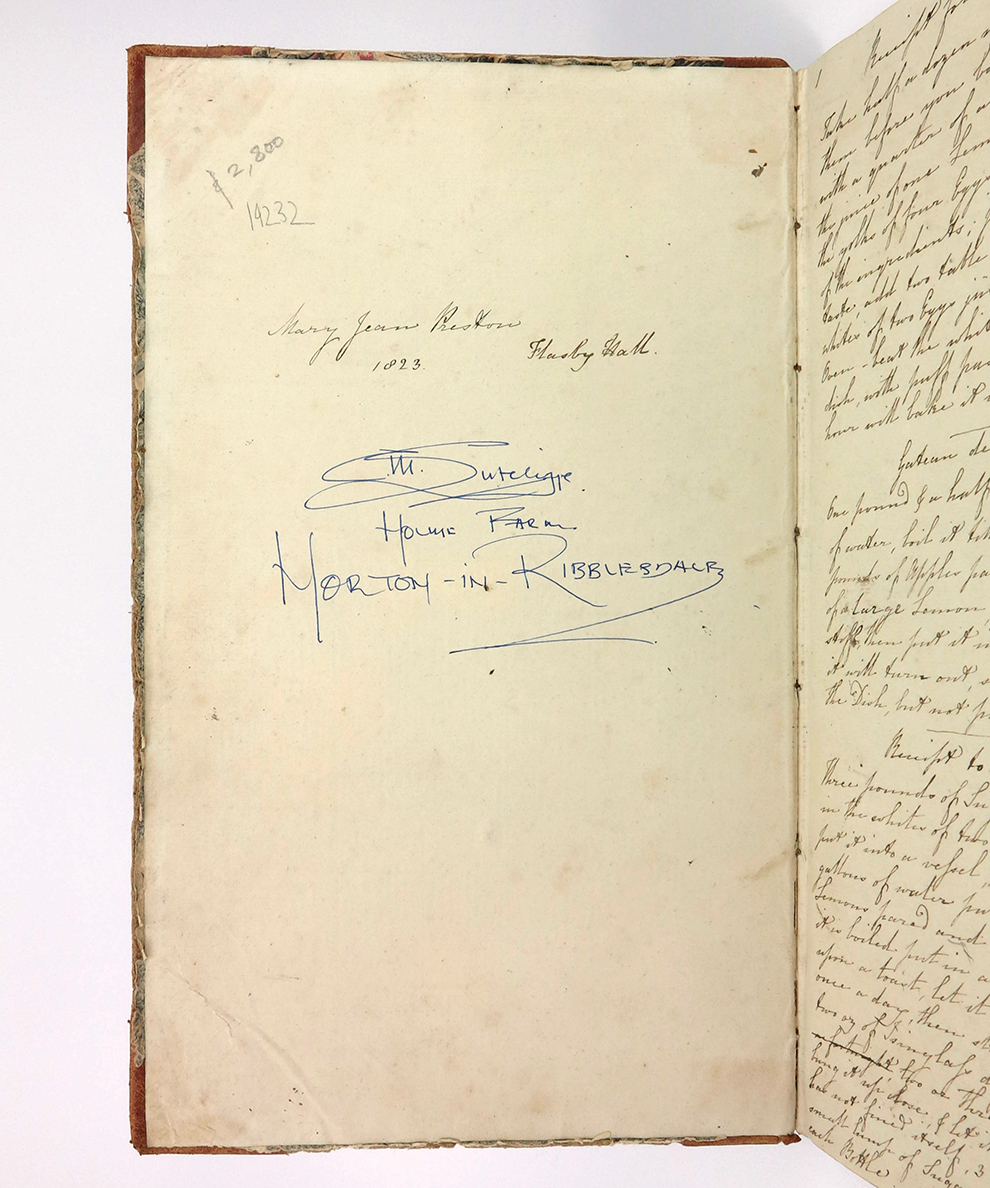 $2,800
19232
Mary Jean Preston
1823. Flasby Hall.
M. Sutcliffe
Holme Farm
HORTON-IN-RIBBLESDALE
1 Receipt for
Take half a dozen
them before you
with a quarter of a
the juice of one Lem
the yolks of four Eggs
of the ingredients;
taste, add two table
whites of two Eggs
Oven - beat the whit
dish, with puff pas
hour will bake it
Gateau de
One pound & a half
of water, boil it til
pounds of Apples pa
of a large Lemon
stiff, then put it
it will turn out,
the Dish, but not p
Receipt to
Three pounds of Su
in the whites of two
put it into a vessel
gallons of water pu
Lemons pared and
it is boiled put in a
upon a toast, let it
once a day, then st
two oz of Isinglass
a fortnight two or thr
bung it up close, & let it
has not fined itself, 3
small lump of Suga
each Bottle